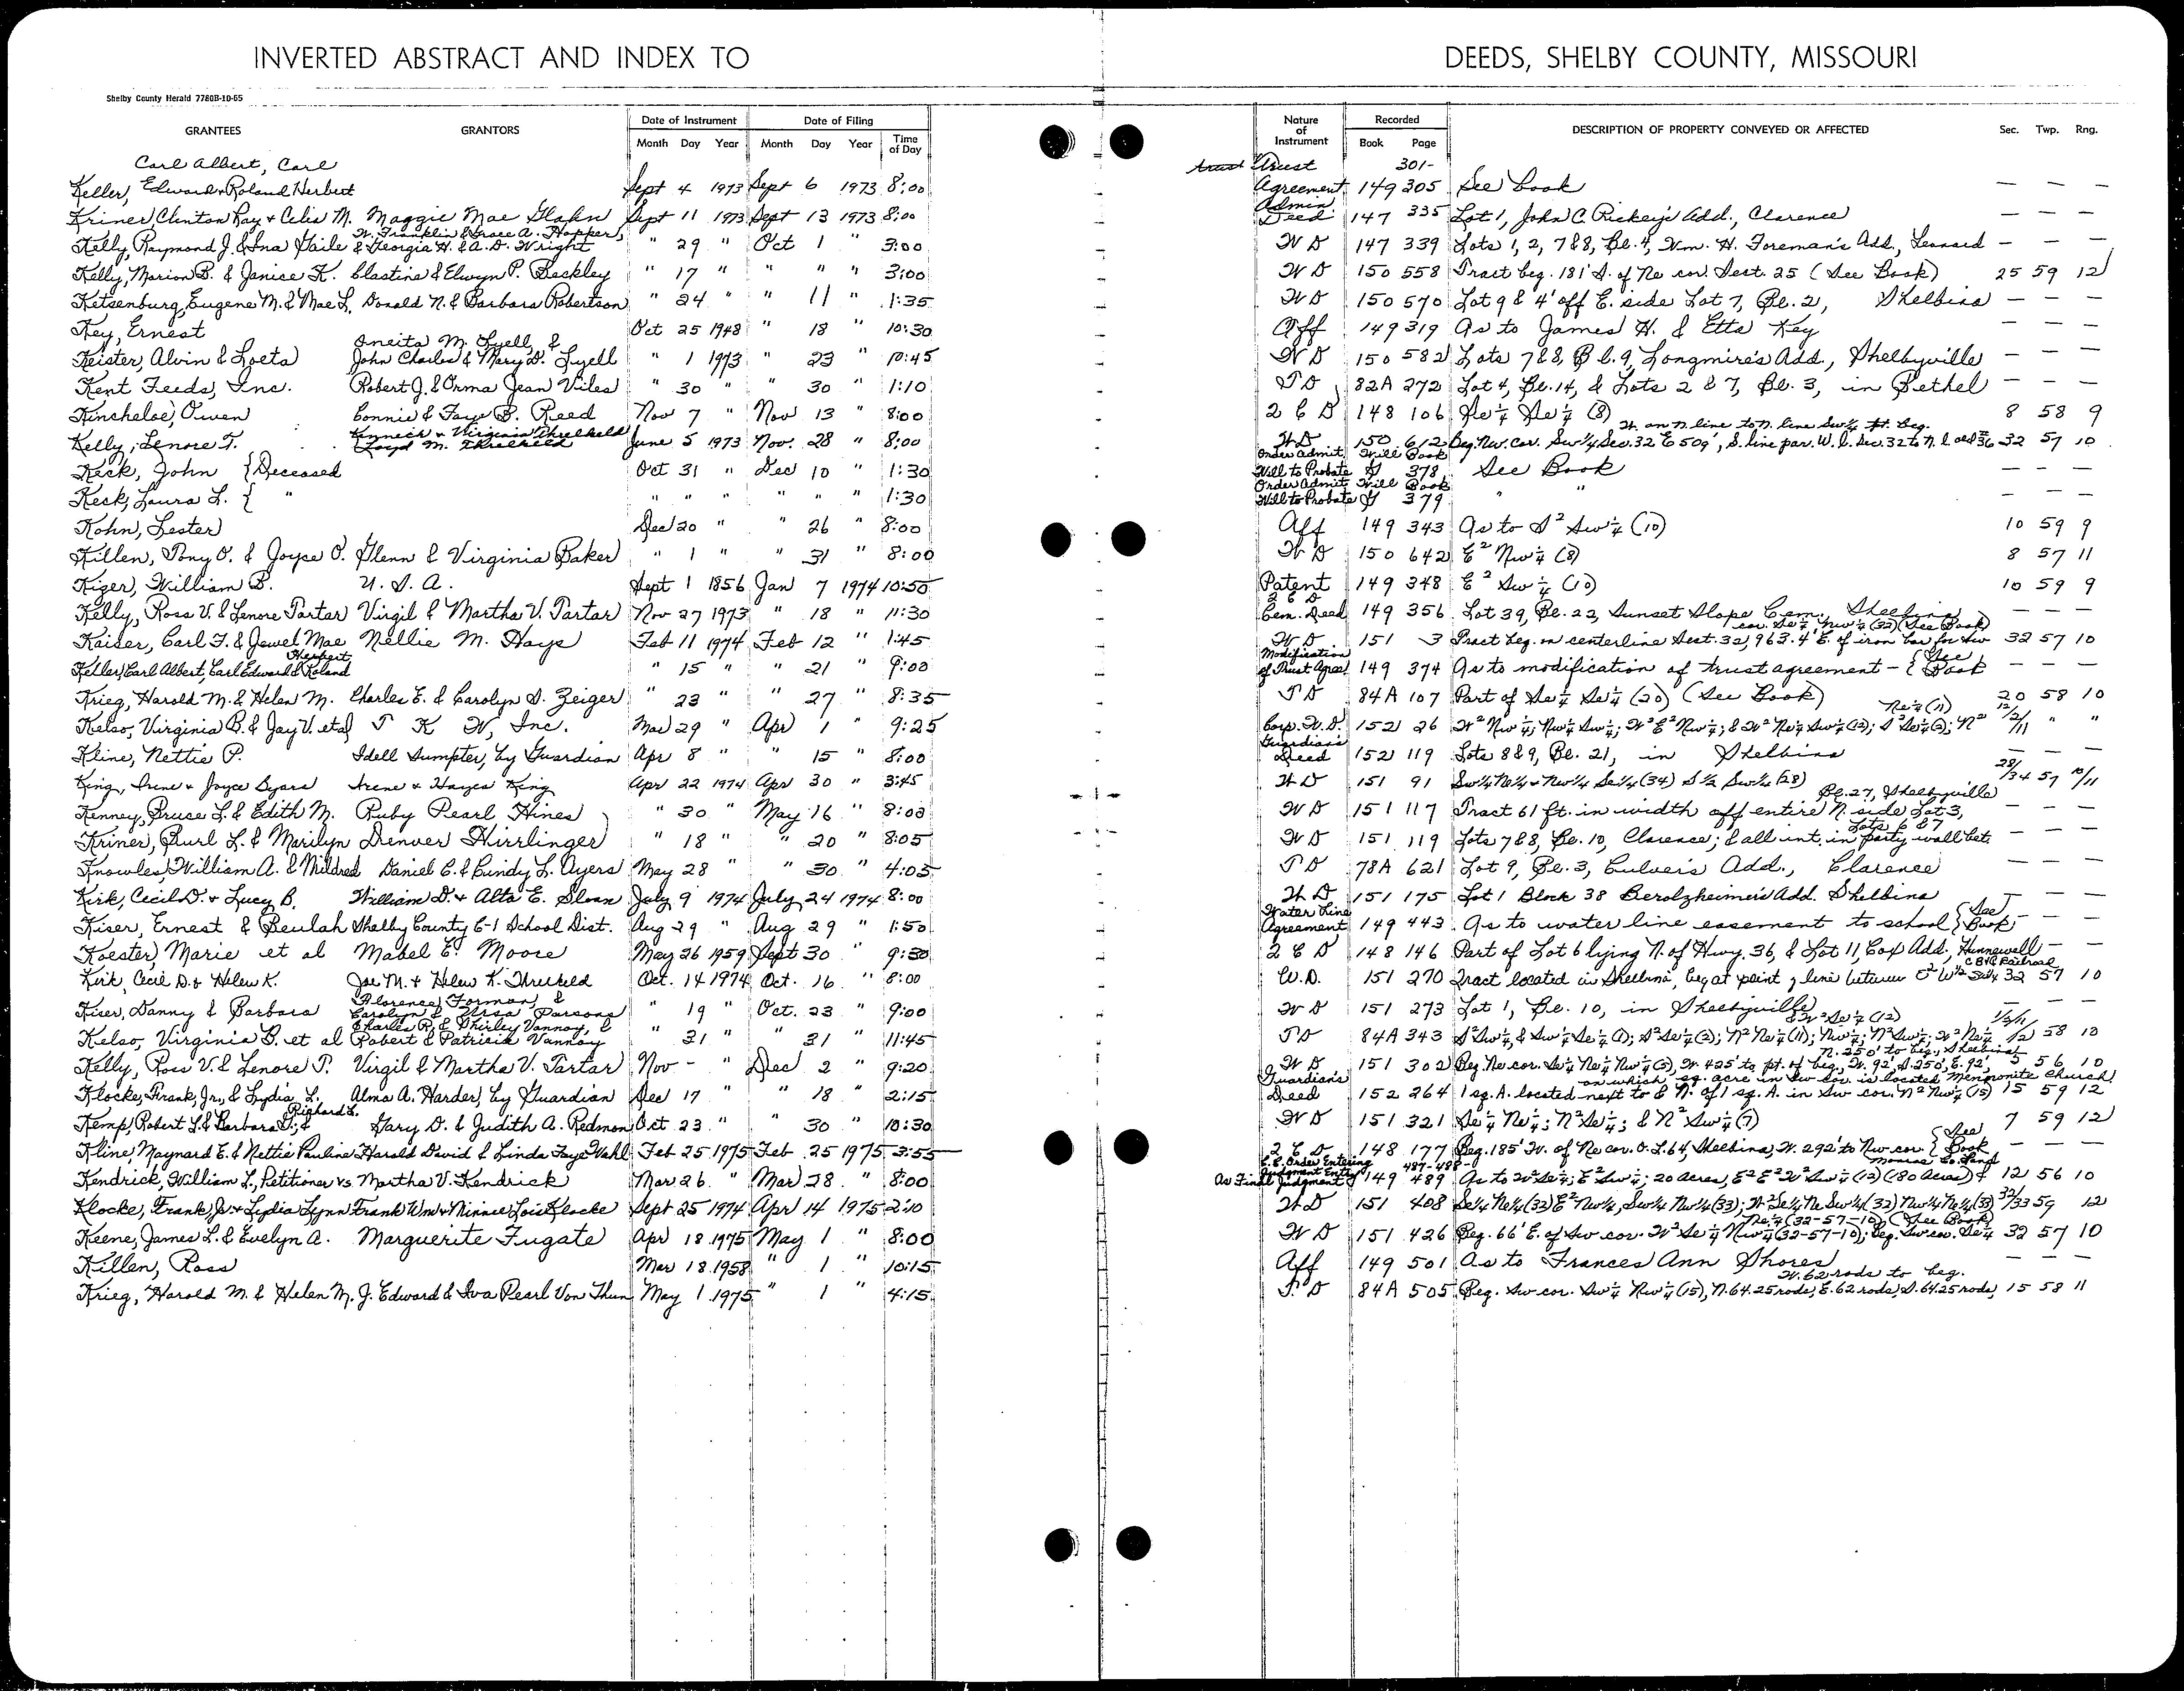 INVERTED ABSTRACT AND INDEX TO DEEDS, SHELBY COUNTY, MISSOURI
Shelby County Herald 7780B-10-65
GRANTEES GRANTORS Date of Instrument Date of Filing Nature of Instrument Recorded DESCRIPTION OF PROPERTY CONVEYED OR AFFECTED Sec. Twp. Rng.
Month Day Year Month Day Year Time of Day Book Page
Carl Albert, Carl Trust 301-
Keller, Edward & Roland Herbert Sept 4 1973 Sept 6 1973 8:00 Agreement 149 305 See Book — — —
Kriner, Clinton Ray & Celia M. Maggie Mae Glahn Sept 11 1973 Sept 13 1973 8:00 Admin Deed 147 335 Lot 1, John C. Rickey's Add., Clarence — — —
W. Franklin & Grace A. Hopper,
Kelly, Raymond J. & Ina Gaile & Georgia H. & A. D. Wright " 29 " Oct 1 " 3:00 W D 147 339 Lots 1, 2, 7 & 8, Bl. 4, Wm. H. Foreman's Add, Leonard — — —
Kelly, Marion B. & Janice K. Clastine & Elwyn P. Beckley " 17 " " " " 3:00 W D 150 558 Tract beg. 181' S. of Ne cor. Sect. 25 (See Book) 25 59 12
Ketsenburg, Eugene M. & Mae L. Donald N. & Barbara Robertson " 24 " " 11 " 1:35 W D 150 570 Lot 9 & 4' off E. side Lot 7, Bl. 2, Shelbina — — —
Key, Ernest Oct 25 1948 " 18 " 10:30 Aff 149 319 As to James H. & Etta Key — — —
Oneita M. Lyell, &
Keister, Alvin & Loeta John Charles & Mary D. Lyell " 1 1973 " 23 " 10:45 W D 150 582 Lots 7 & 8, Bl. 9, Longmire's Add., Shelbyville — — —
Kent Feeds, Inc. Robert J. & Orma Jean Viles " 30 " " 30 " 1:10 T D 82A 272 Lot 4, Bl. 14, & Lots 2 & 7, Bl. 3, in Bethel — — —
Kincheloe, Owen Connie & Faye B. Reed Nov 7 " Nov 13 " 8:00 2 C D 148 106 Se¼ Se¼ (8) 8 58 9
Kenneth & Virginia Threlkeld W. on N. line to N. line Sw¼ pt. beg.
Kelly, Lenore T. Loyd M. Threlkeld June 5 1973 Nov. 28 " 8:00 W D 150 612 Beg. Nw. cor. Sw¼ Sec. 32 E 509', S. line par. W. l. Sec. 32 to N. l. old 36 32 57 10
Keck, John {Deceased Oct 31 " Dec 10 " 1:30 Order Admit. Will to Probate Will Book G 378 See Book — — —
Keck, Laura L. { " " " " " " " 1:30 Order Admit. Will to Probate Will Book G 379 " " — — —
Kohn, Lester Dec 20 " " 26 " 8:00 Aff 149 343 As to S² Sw¼ (10) 10 59 9
Killen, Tony O. & Joyce O. Glenn & Virginia Baker " 1 " " 31 " 8:00 W D 150 642 E² Nw¼ (8) 8 57 11
Kiger, William B. U. S. A. Sept 1 1856 Jan 7 1974 10:50 Patent 149 348 E² Sw¼ (10) 10 59 9
Kelly, Ross V. & Lenore Tartar Virgil & Martha V. Tartar Nov 27 1973 " 18 " 11:30 2 C D Cem. Deed 149 356 Lot 39, Bl. 22, Sunset Slope Cem., Shelbina — — —
cor. Se¼ Nw¼ (32) (See Book)
Kaiser, Carl F. & Jewel Mae Nellie M. Hays Feb 11 1974 Feb 12 " 1:45 W D 151 3 Tract beg. on centerline Sect. 32, 963.4' E. of iron bar for Sw 32 57 10
Herbert
Keller, Carl Albert, Carl Edward & Roland " 15 " " 21 " 9:00 Modification of Trust Agree. 149 374 As to modification of trust agreement - {See Book — — —
Krieg, Harold M. & Helen M. Charles E. & Carolyn S. Zeiger " 23 " " 27 " 8:35 T D 84A 107 Part of Se¼ Se¼ (20) (See Book) 20 58 10
Ne¼ (11)
Kelso, Virginia B. & Jay V. etal T K W, Inc. Mar 29 " Apr 1 " 9:25 Corp. W. D. 152 26 W² Nw¼; Nw¼ Sw¼; W² E² Nw¼; & W² Ne¼ Sw¼ (12); S² Se¼ (2); N² 12/2/11 " "
Kline, Nettie P. Idell Sumpter, by Guardian Apr 8 " " 15 " 8:00 Guardian's Deed 152 119 Lots 8 & 9, Bl. 21, in Shelbina — — —
King, Irene & Joyce Byars Irene & Hayes King Apr 22 1974 Apr 30 " 3:45 W D 151 91 Sw¼ Ne¼ & Nw¼ Se¼ (34) S½ Sw¼ (28) 28/34 57 10/11
Bl. 27, Shelbyville
Kenney, Bruce L. & Edith M. Ruby Pearl Hines " 30 " May 16 " 8:00 W D 151 117 Tract 61 ft. in width off entire N. side Lot 3, — — —
Lots 6 & 7
Kriner, Burl L. & Marilyn Denver Hirrlinger " 18 " " 20 8:05 W D 151 119 Lots 7 & 8, Bl. 10, Clarence; & all int. in party wall bet. — — —
Knowles, William A. & Mildred Daniel C. & Cindy L. Ayers May 28 " " 30 " 4:05 T D 78A 621 Lot 9, Bl. 3, Culver's Add., Clarence — — —
Kirk, Cecil D. & Lucy B. William D. & Alta E. Sloan July 9 1974 July 24 1974 8:00 W D 151 175 Lot 1 Block 38 Berolzheimer's Add. Shelbina — — —
Kiser, Ernest & Beulah Shelby County C-1 School Dist. Aug 29 " Aug 29 " 1:50 Water Line Agreement 149 443 As to water line easement to school {See Book — — —
Koester, Marie et al Mabel E. Moore May 26 1959 Sept 30 " 9:30 2 C D 148 146 Part of Lot 6 lying N. of Hwy. 36, & Lot 11, Cox Add, Hunnewell — —
CB&Q Railroad
Kirk, Cecil D. & Helen K. Joe M. & Helen K. Threlkeld Oct. 14 1974 Oct. 16 " 8:00 W.D. 151 270 Tract located in Shelbina, beg at point of line between E² W½ Se¼ 32 57 10
Florence Forman, &
Kiser, Danny & Barbara Carolyn & Ursa Parsons " 19 " Oct. 23 " 9:00 W D 151 273 Lot 1, Bl. 10, in Shelbyville — — —
Charles R. & Shirley Vannoy, & & W² Se¼ (12)
Kelso, Virginia B. et al Robert & Patricia Vannoy " 31 " " 31 " 11:45 T D 84A 343 S² Sw¼ & Sw¼ Se¼ (1); S² Se¼ (2); N² Ne¼ (11); Nw¼; N² Sw¼; W² Ne¼ 1/2/11/12 58 10
N. 250' to beg., Shelbina
Kelly, Ross V. & Lenore T. Virgil & Martha V. Tartar Nov - " Dec 2 " 9:20 W D 151 302 Beg. Ne cor. Se¼ Ne¼ Nw¼ (5), W. 425' to pt. of beg., W. 92', S. 250', E. 92', 5 56 10
on which sq. acre in Sw cor. is located Mennonite Church
Klocke, Frank, Jr., & Lydia L. Alma A. Harder, by Guardian Dec 17 " " 18 " 2:15 Guardian's Deed 152 264 1 sq. A. located next to & N. of 1 sq. A. in Sw cor. N² Nw¼ (15) 15 59 12
Richard L.
Kemp, Robert L. & Barbara J., & Gary D. & Judith A. Redmon Oct. 23 " " 30 " 10:30 W D 151 321 Se¼ Ne¼; N² Se¼; & N² Sw¼ (7) 7 59 12
Kline, Maynard E. & Nettie Pauline Harold David & Linda Faye Wahl Feb 25 1975 Feb 25 1975 3:55 2 C D 148 177 Beg. 185' W. of Ne cor. O. L. 64, Shelbina, W. 292' to Nw cor. {See Book — — —
487-488- Monroe Co. Land
Kendrick, William L., Petitioner vs. Martha V. Kendrick Mar. 26 " Mar 28 " 8:00 C.C. Order Entering Judgment Entry As Final Judgment 149 489 As to W² Se¼; E² Sw¼; 20 Acres, E² E² W² Sw¼ (12) (180 Acres) & 12 56 10
Klocke, Frank Jr & Lydia Lynn Frank Wm & Minnie Lois Klocke Sept 25 1974 Apr 14 1975 2:10 W D 151 408 Se¼ Ne¼ (32) E² Nw¼, Sw¼ Nw¼ (33); W² Se¼ Ne Sw¼ (32) Nw¼ Ne¼ (33) 32/33 59 12
Ne¼ (32-57-10) (See Book)
Keene, James L. & Evelyn A. Marguerite Fugate Apr 18 1975 May 1 " 8:00 W D 151 426 Beg. 66' E. of Sw cor. W² Se¼ Nw¼ (32-57-10); Beg. Sw cor. Se¼ 32 57 10
Killen, Ross Mar 18 1958 " 1 " 10:15 Aff 149 501 As to Frances Ann Shores — —
W. 62 rods to beg.
Krieg, Harold M. & Helen M. J. Edward & Iva Pearl Von Thun May 1 1975 " 1 " 4:15 T D 84A 505 Beg. Sw cor. Sw¼ Nw¼ (15), N. 64.25 rods, E. 62 rods, S. 64.25 rods, 15 58 11